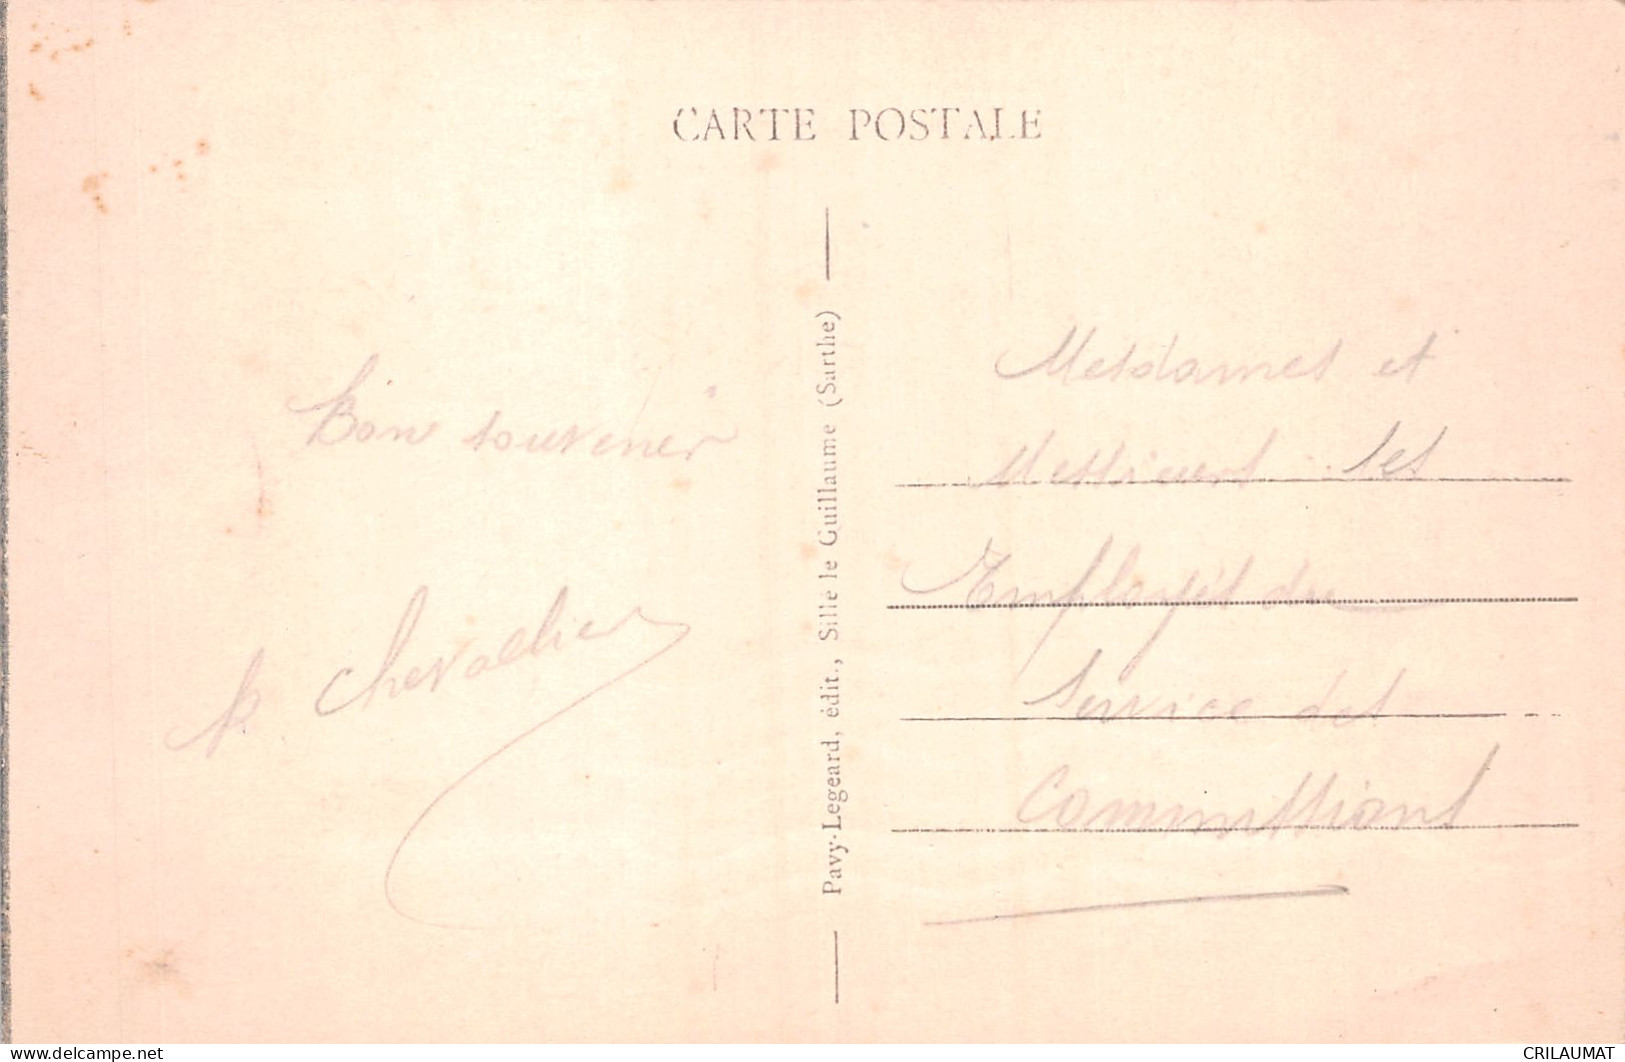 CARTE POSTALE
Bon souvenir
Chevallier
Pavy-Legeard, édit., Sillé le Guillaume (Sarthe)
Mesdames et
Messieurs les
Employés du
Service des
Commissions
https://www.delcampe.net
CRILAUMAT